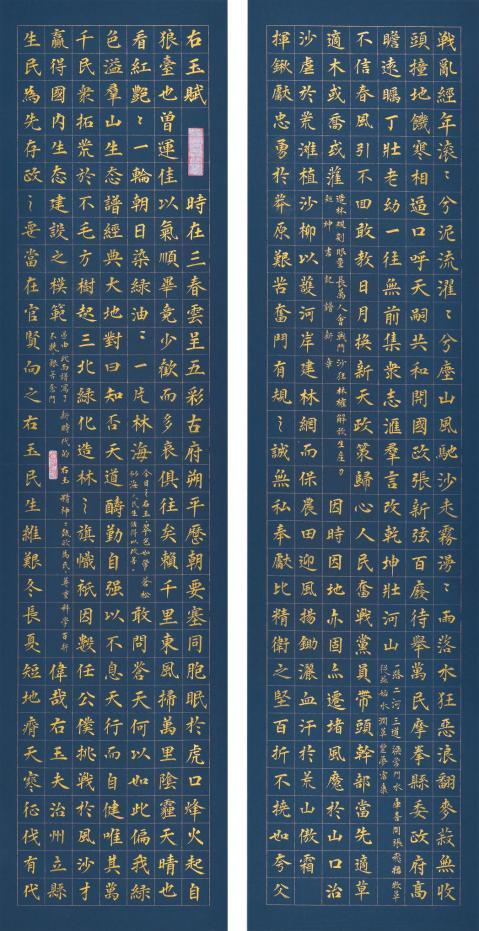 右玉賦 時在三春雲呈五彩古府朔平歷朝要塞同胞眠於虎口烽火起自
狼臺也曾運佳以氣順畢竟少歡而多哀俱往矣賴千里東風掃萬里陰霾天晴也
看紅艷々一輪朝日染綠油々一片林海 敢問蒼天何以如此偏我綠
色溢羣山生态譜經典大地對曰知否天道酬勤自强以不息天行而自健唯其萬
千民衆拓荒於不毛方樹起三北綠化造林之旗幟祇因數任公僕挑戰於風沙才
贏得國内生态建設之模範 新時代的右玉精神 偉哉右玉夫治州立縣
生民為先存政之要當在官賢向之右玉民生維艱冬長夏短地瘠天寒征伐有代
戰亂經年滾々兮泥流濯々兮塵山風馳沙走霧湧々雨落水狂惡浪翻麥菽無收
頭撞地饑寒相逼口呼天嗣共和開國政張新弦百廢待舉萬民摩拳縣委政府高
瞻遠矚丁壯老幼一往無前集衆志滙羣言改乾坤壯河山 一路二河三道梁
不信春風引不回敢教日月换新天政策歸心人民奮戰黨員帶頭幹部當先適草
適木或喬或灌 造林規劃眼量長萬人會戰鬥沙狂林權解放生産力 書記譜新章 因時因地亦固亦遷堵風魔於山口治
沙虐於荒灘植沙柳以護河岸建林網而保農田迎風揚鋤灑血汗於荒山傲霜
揮鍬獻忠勇於莽原艱苦奮鬥有規之誠無私奉獻比精衛之堅百折不撓如夸父